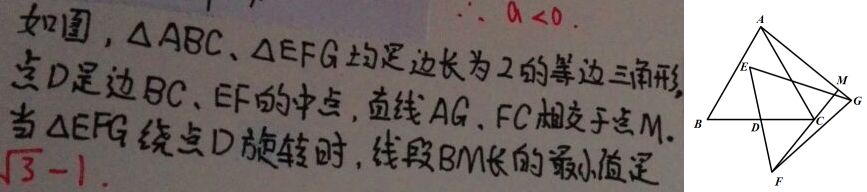 ∴ a<0.
如图,△ABC、△EFG均是边长为2的等边三角形,
点D是边BC、EF的中点,直线AG、FC相交于点M.
当△EFG绕点D旋转时,线段BM长的最小值是
√3-1.
A
E
M
G
B
D
C
F